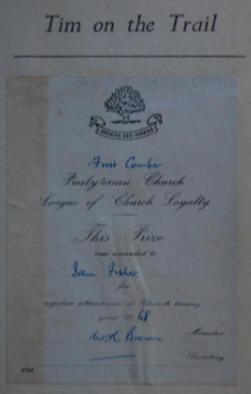 Tim on the Trail
ARDENS SED VIRENS
First Comber
Presbyterian Church
League of Church Loyalty
This Prize
was awarded to
Ian Fisher
for
regular attendance at Church during
year 19 68
W.K. Brown Minister
Secretary